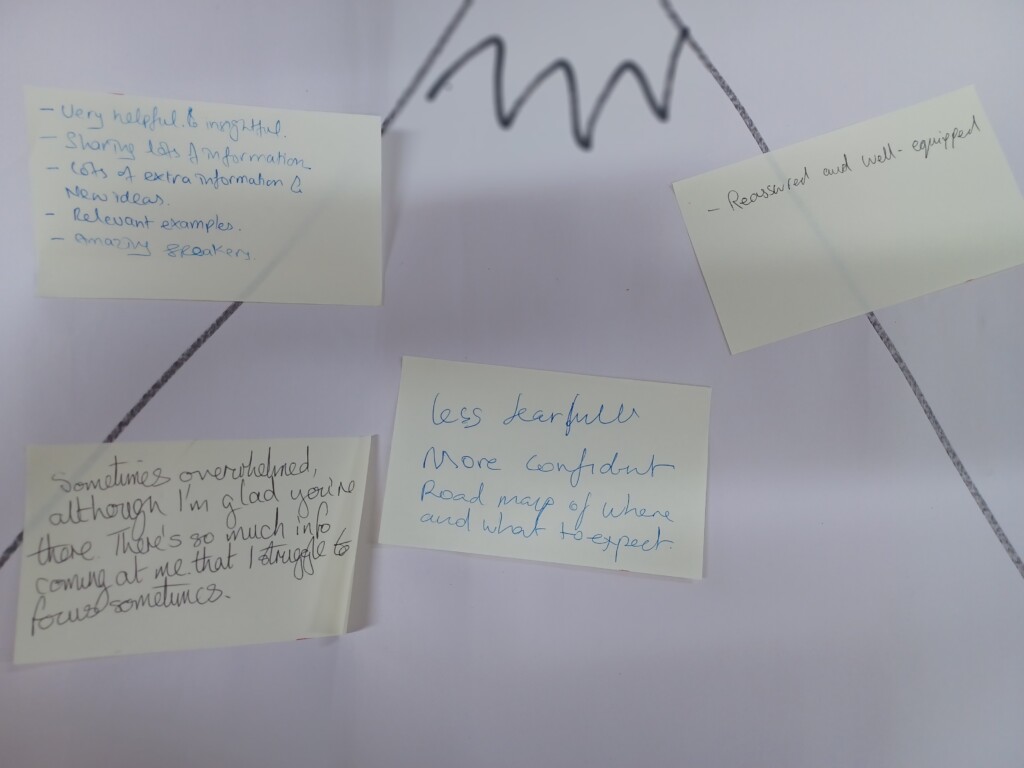 - Very helpful & insightful.
- Sharing lots of information
- Lots of extra information &
New ideas.
- Relevant examples.
- amazing speakers.
- Reassured and well-equipped
less fearfull
More confident
Road map of where
and what to expect.
Sometimes overwhelmed,
although I'm glad you're
there. There's so much info
coming at me that I struggle to
focus sometimes.